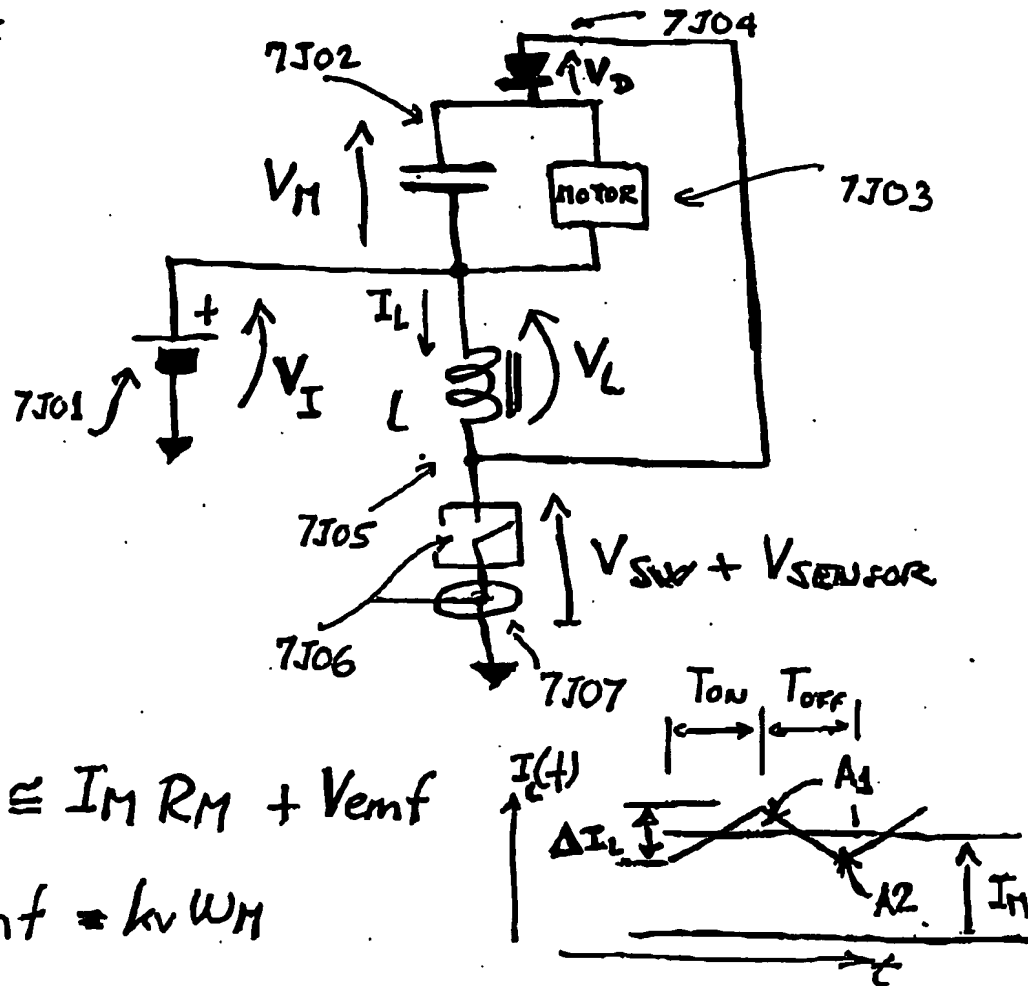 7J04
7J02
V_D
V_M
MOTOR
7J03
+
I_L
V_I
V_L
7J01
L
7J05
V_SW + V_SENSOR
7J06
7J07
T_ON T_OFF
≅ I_M R_M + Vemf
I_L(t)
A1
ΔI_L
A2
I_M
mf = kv ω_M
t